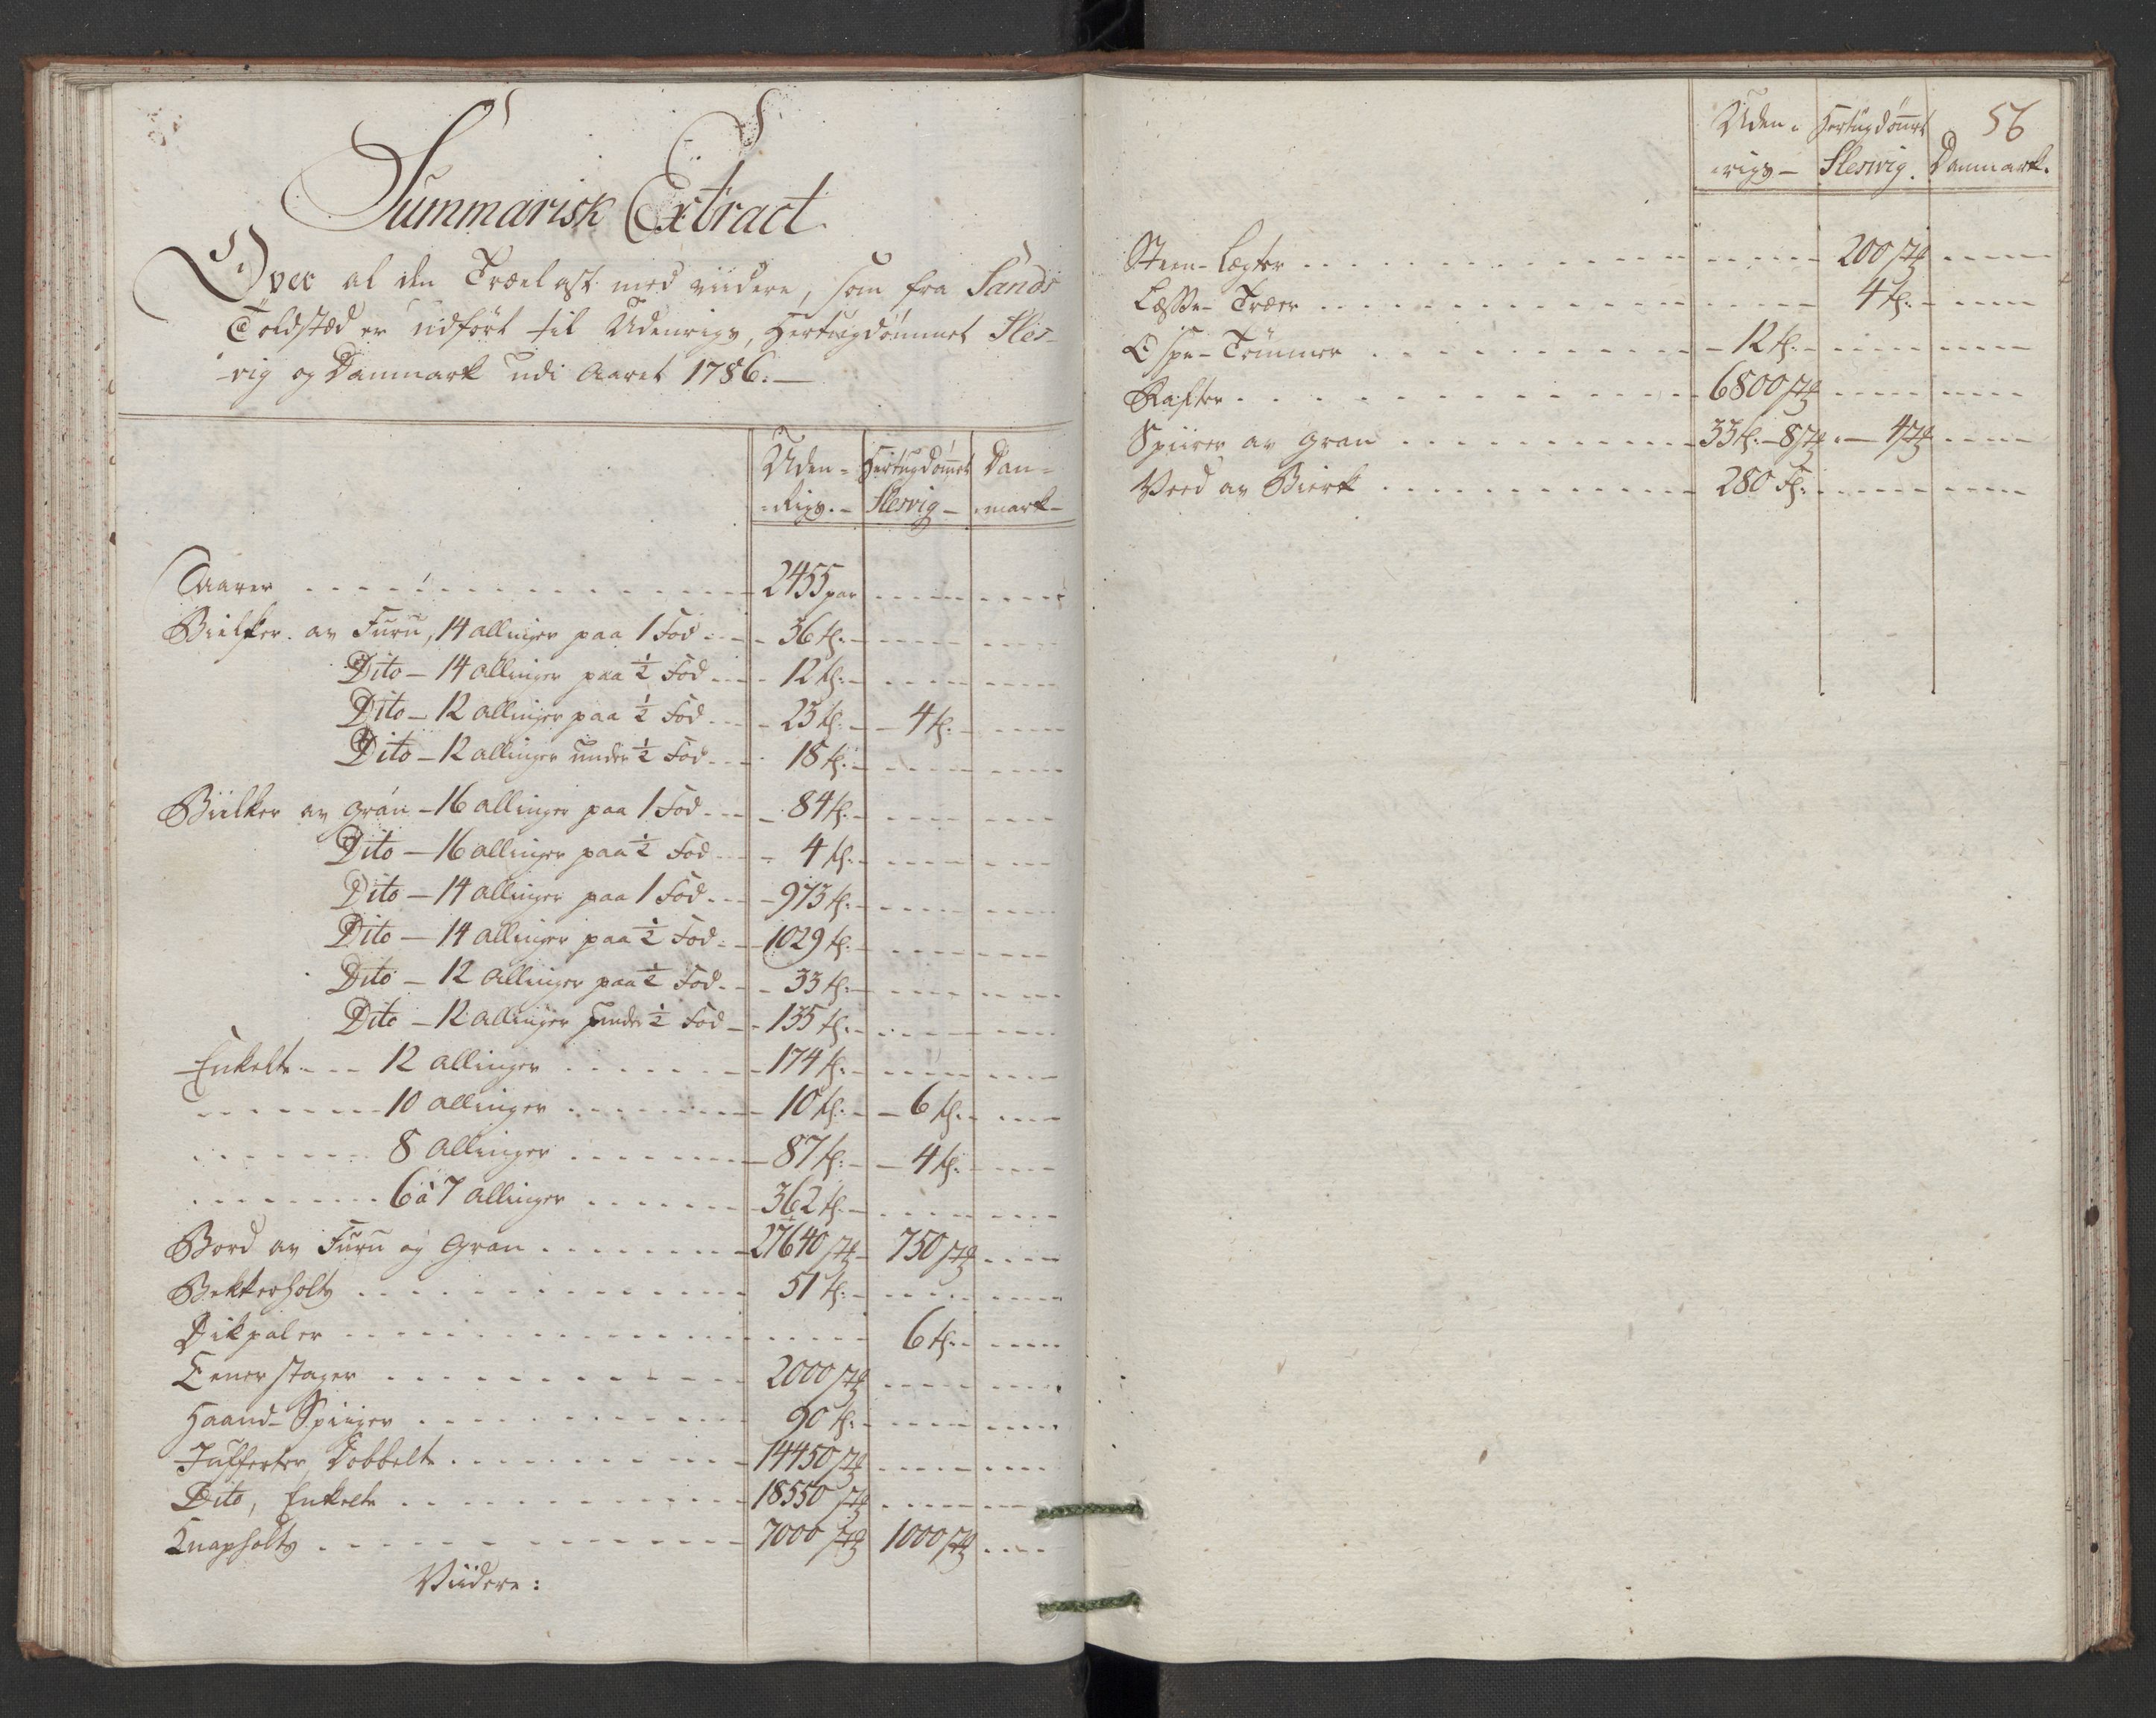 Summarisk Extract
Over al den Trælast med viidere, som fra Sands
Toldstæd er udført til Udenrigs, Hertugdømmet Sles-
-vig og Danmark udi Aaret 1786.—
Uden- Hertugdømet Dan-
-Rigs.- Slesvig- -mark-
Aarer 2455 par
Bielker av Furu, 14 allinger paa 1 Fod 36 tl:
Dito - 14 allinger paa ½ Fod 12 tl:
Dito - 12 allinger paa ½ Fod 23 tl: 4 tl:
Dito - 12 allinger under ½ Fod 18 tl:
Bielker av gran - 16 allinger paa 1 Fod 84 tl:
Dito - 16 allinger paa ½ Fod 4 tl:
Dito - 14 allinger paa 1 Fod 973 tl:
Dito - 14 allinger paa ½ Fod 1029 tl:
Dito - 12 allinger paa ½ Fod 33 tl:
Dito - 12 allinger under ½ Fod 135 tl:
Enkelte 12 allinger 174 tl:
10 allinger 10 tl: 6 tl:
8 allinger 87 tl: 4 tl:
6 à 7 allinger 362 tl:
Bord av Furu og Gran 27640 stk 750 stk
Bekkerholtz 51 tl:
Dikpaler 6 tl:
Eenerstager 2000 stk
Haand-Spiiger 90 tl:
Jufferter, Dobbelte 14450 stk
Dito, Enkelte 18550 stk
Knapholtz 7000 stk 1000 stk
Viidere:
56
Uden- Hertugdømet
-rigs- Slesvig. Danmark.
Steen-Lægter 200 stk
Læsse-Træer 4 tl:
Ospe-Tømmer 12 tl:
Rafter 6800 stk
Spiirer av gran 33 tl:-8 stk 4 stk
Veed av Bierk 280 F: